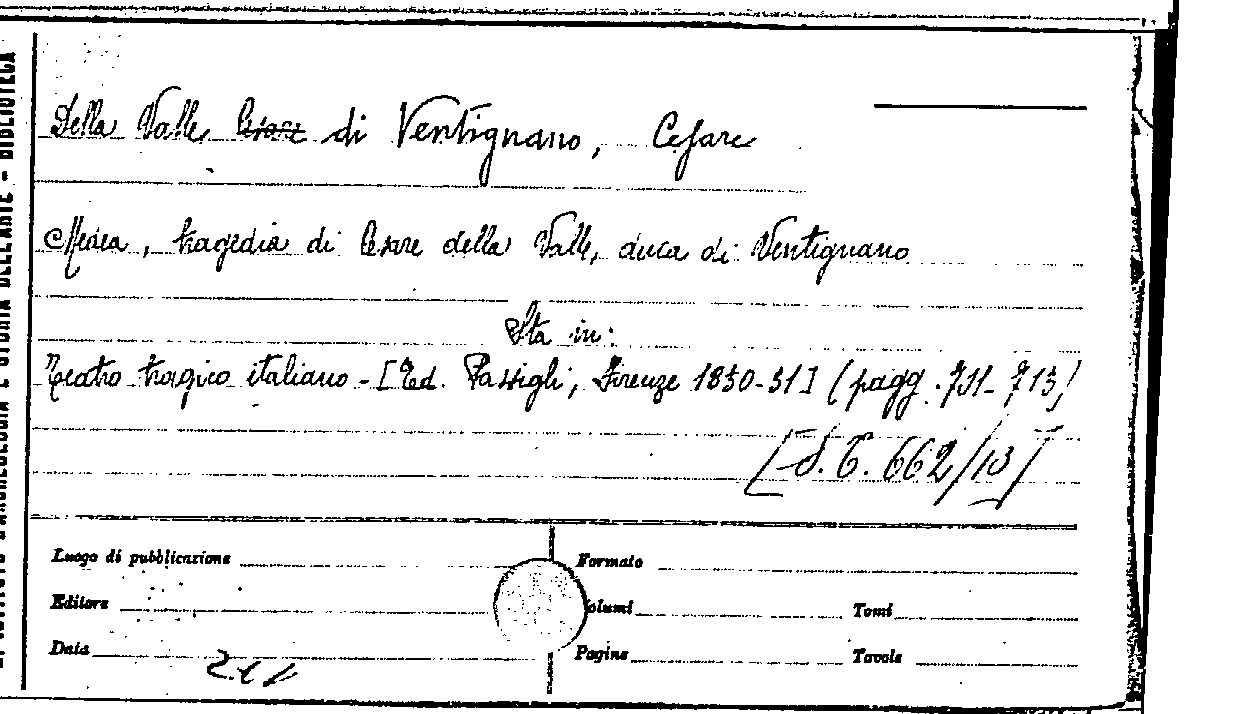 Della Valle Cesare di Ventignano, Cesare
Medea, tragedia di Cesare della Valle, duca di Ventignano
Sta in:
Teatro tragico italiano - [Ed. Passigli, Firenze 1830-31] (pagg. 701- 713)
[S.T. 662/13]
Luogo di pubblicazione
Formato
Editore
olumi
Tomi
Data
Pagine
Tavole
ARCHEOLOGIA E STORIA DELL'ARTE - BIBLIOTECA